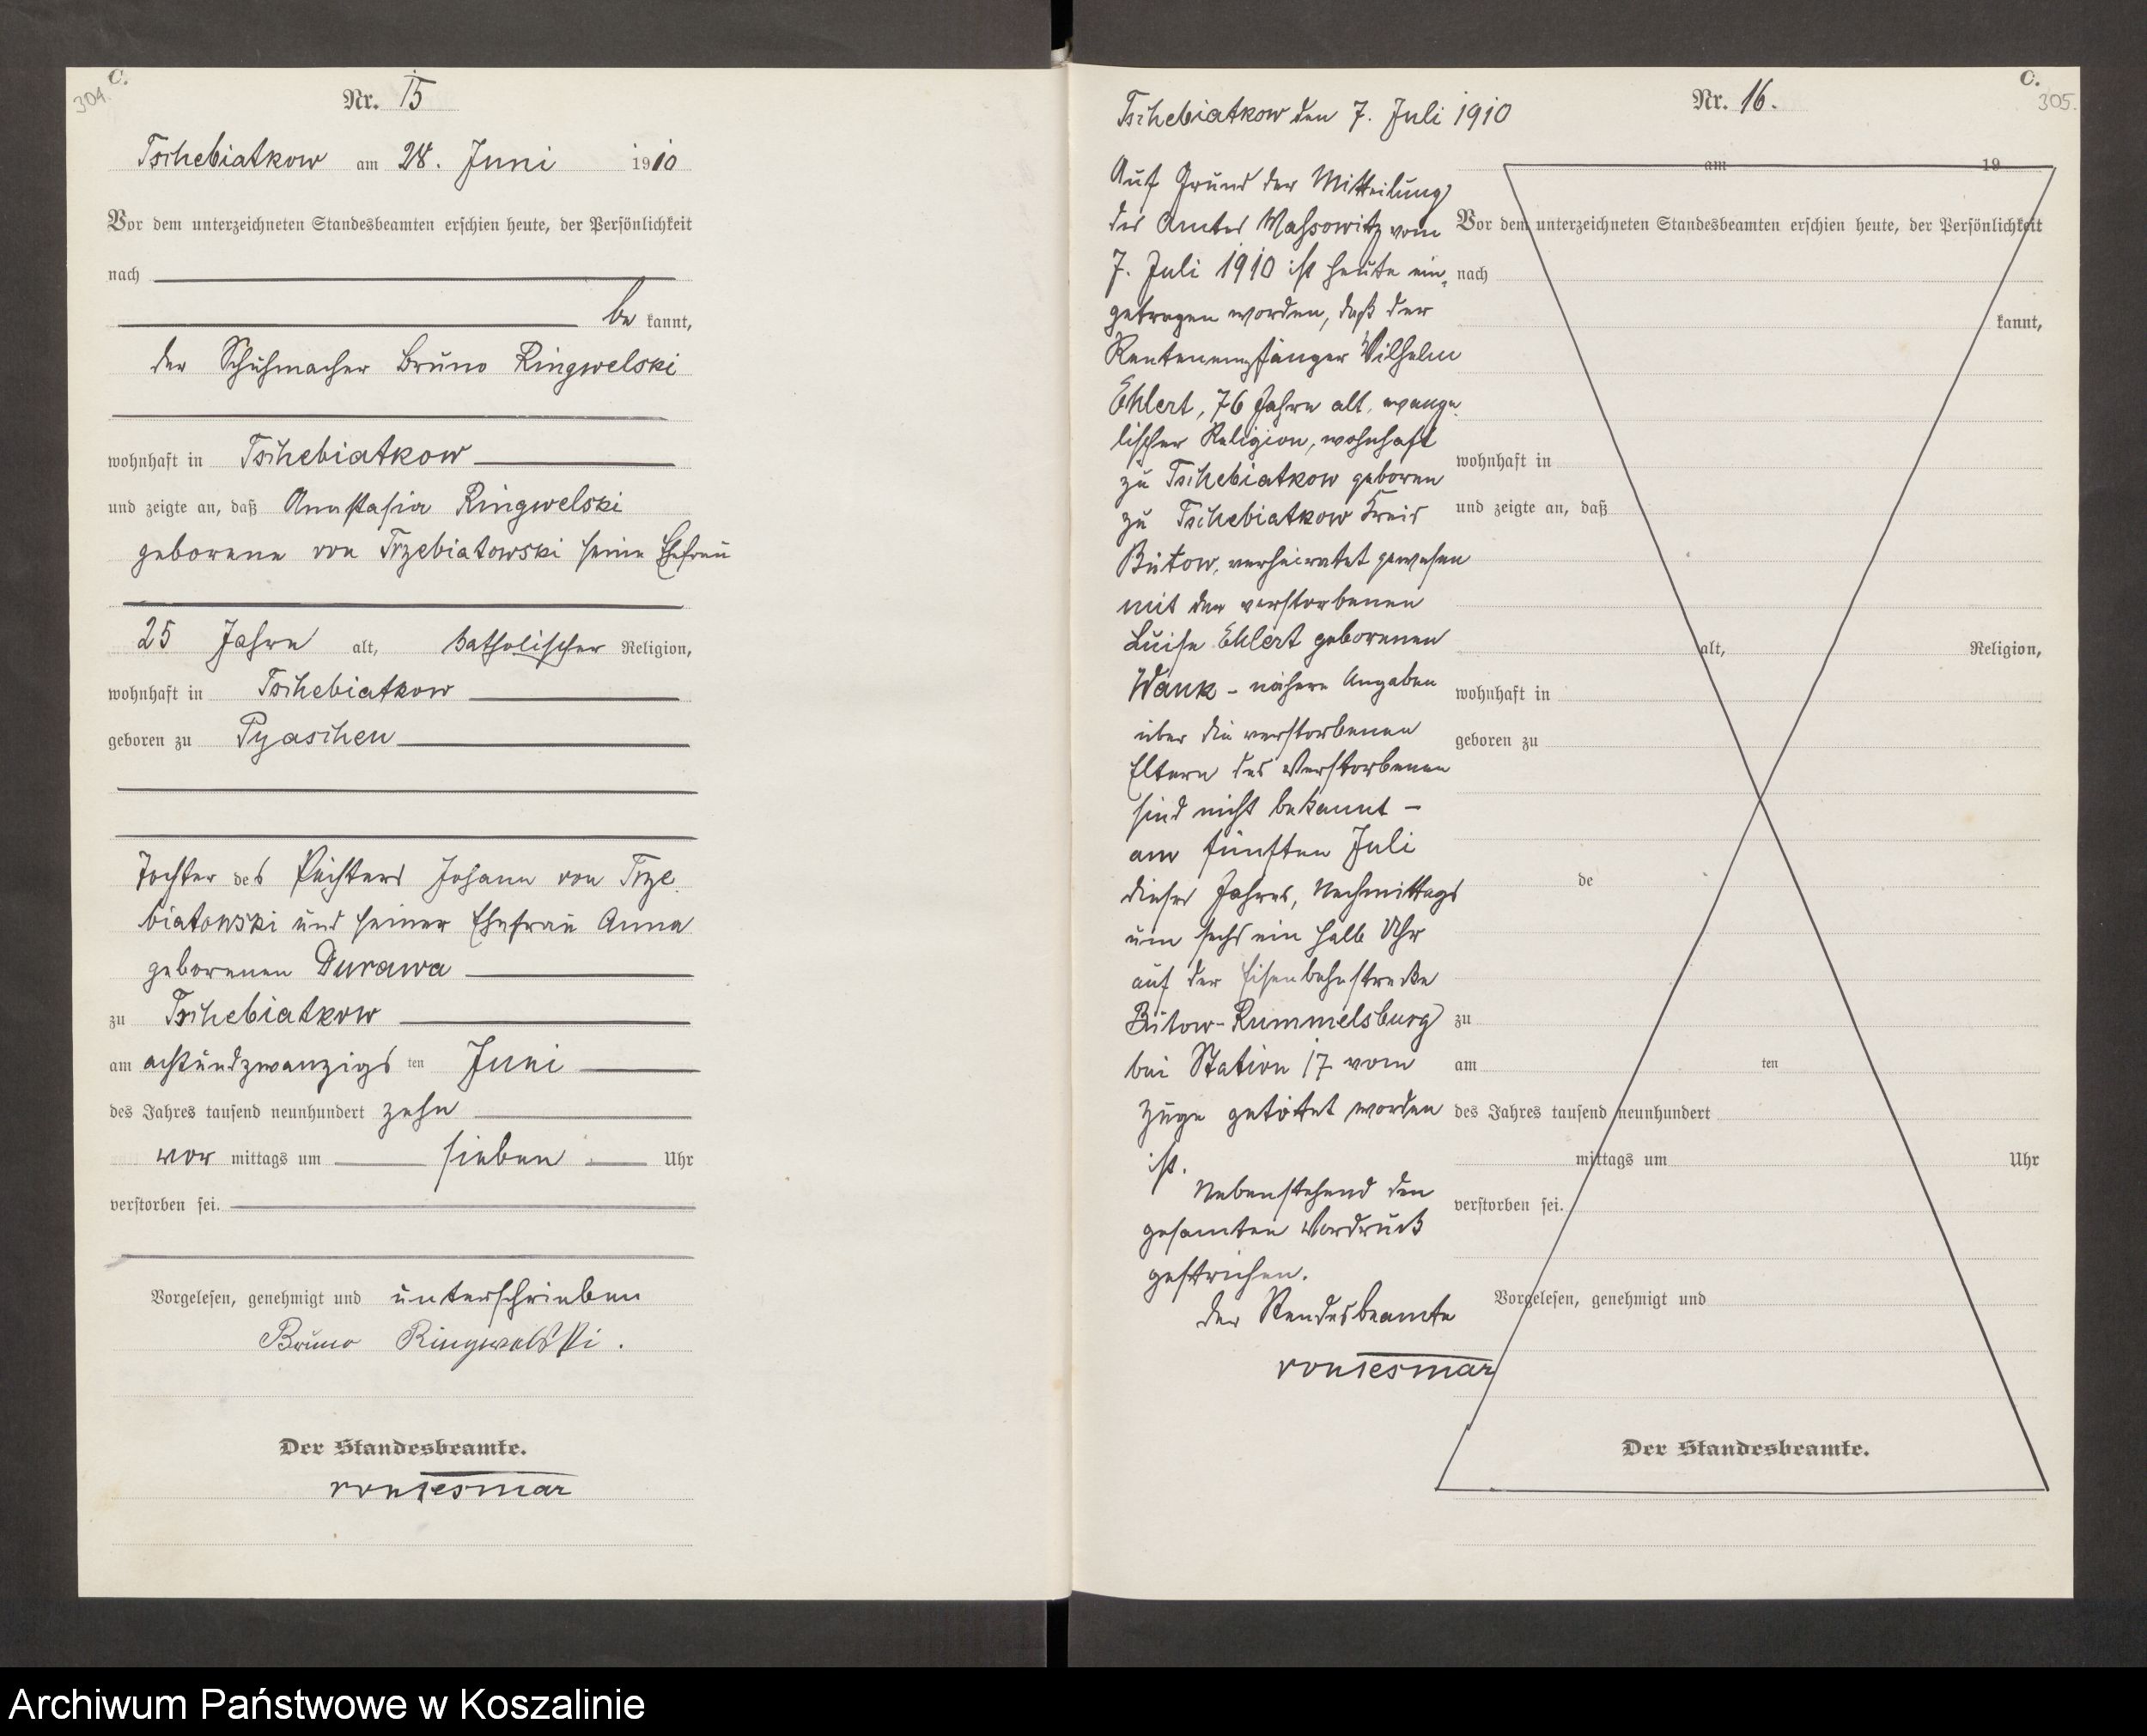 C.
304.
Nr. 15
Tschebiatkow am 28. Juni 1910
Vor dem unterzeichneten Standesbeamten erschien heute, der Persönlichkeit
nach
be kannt,
der Schuhmacher Bruno Ringwelski
wohnhaft in Tschebiatkow
und zeigte an, daß Anastasia Ringwelski
geborene von Trzebiatowski seine Ehefrau
25 Jahre alt, katholischer Religion,
wohnhaft in Tschebiatkow
geboren zu Pyaschen
Tochter des Pächters Johann von Trze
biatowski und seiner Ehefrau Anna
geborenen Durawa
zu Tschebiatkow
am achtundzwanzigs ten Juni
des Jahres tausend neunhundert zehn
vor mittags um sieben Uhr
verstorben sei.
Vorgelesen, genehmigt und unterschrieben
Bruno Ringwelski.
Der Standesbeamte.
von Tesmar
C.
305.
Nr. 16.
Tschebiatkow den 7. Juli 1910
Auf Grund der Mitteilung
des Amtes Massowitz vom
7. Juli 1910 ist heute ein,
getragen worden, daß der
Rentenempfänger Wilhelm
Ehlert, 76 Jahre alt, evange
lischer Religion, wohnhaft
zu Tschebiatkow geboren
zu Tschebiatkow Kreis
Bütow, verheiratet gewesen
mit der verstorbenen
Luise Ehlert geborenen
Wauk - nähere Angaben
über die verstorbenen
Eltern des Verstorbenen
sind nicht bekannt -
am fünften Juli
dieses Jahres, Nachmittags
um sechs ein halb Uhr
auf der Eisenbahnstrecke
Bütow-Rummelsburg
bei Station 17 vom
Zuge getötet worden
ist.
Nebenstehend den
gesamten Vordruck
gestrichen.
Der Standesbeamte
von Tesmar
am 19
Vor dem unterzeichneten Standesbeamten erschien heute, der Persönlichkeit
nach
kannt,
wohnhaft in
und zeigte an, daß
alt, Religion,
wohnhaft in
geboren zu
de
zu
am ten
des Jahres tausend neunhundert
mittags um Uhr
verstorben sei.
Vorgelesen, genehmigt und
Der Standesbeamte.
Archiwum Państwowe w Koszalinie